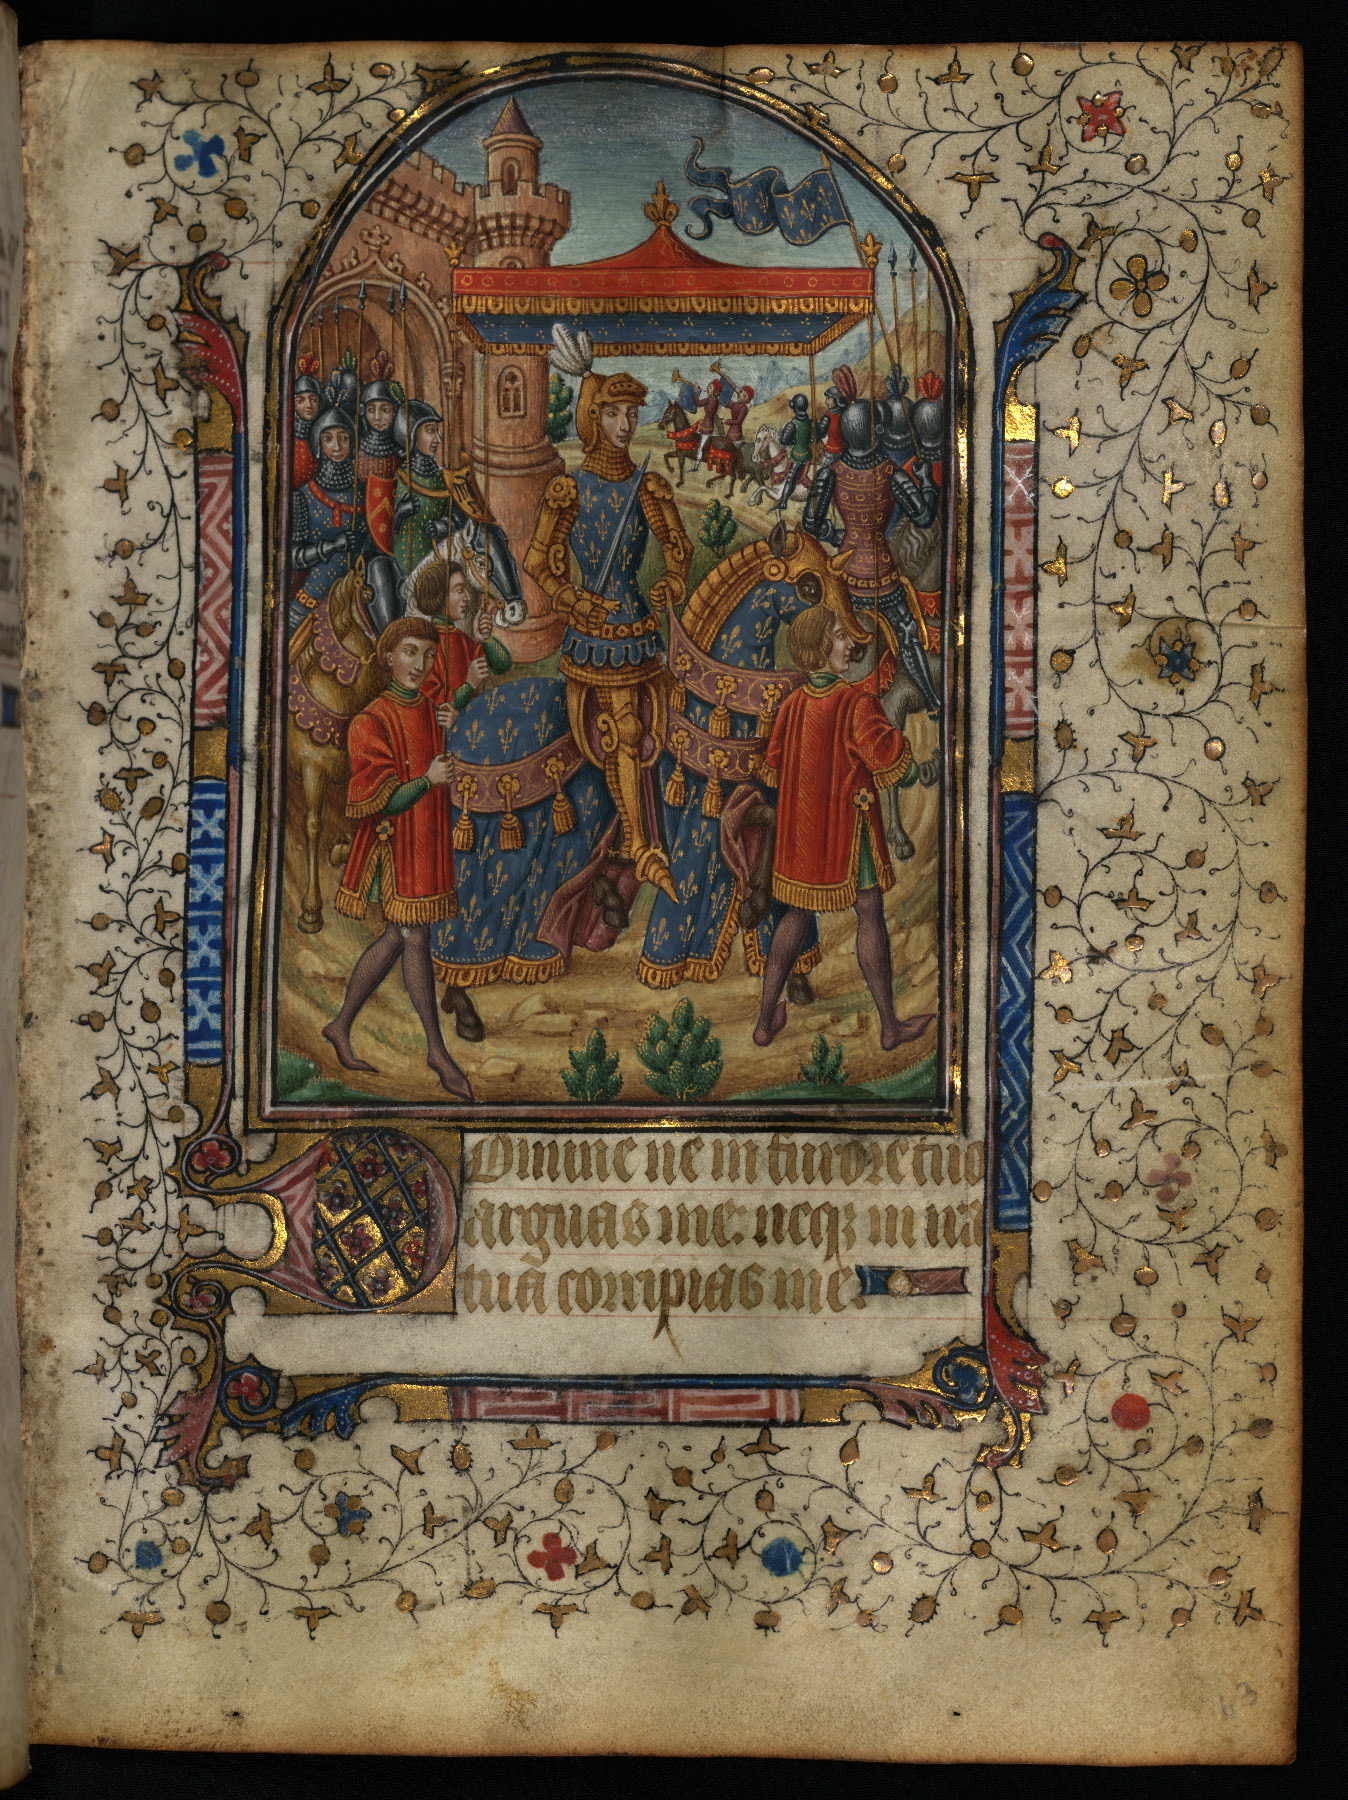 Domine ne in furore tuo
arguas me: neqꝫ in ira
tua corripias me.
63